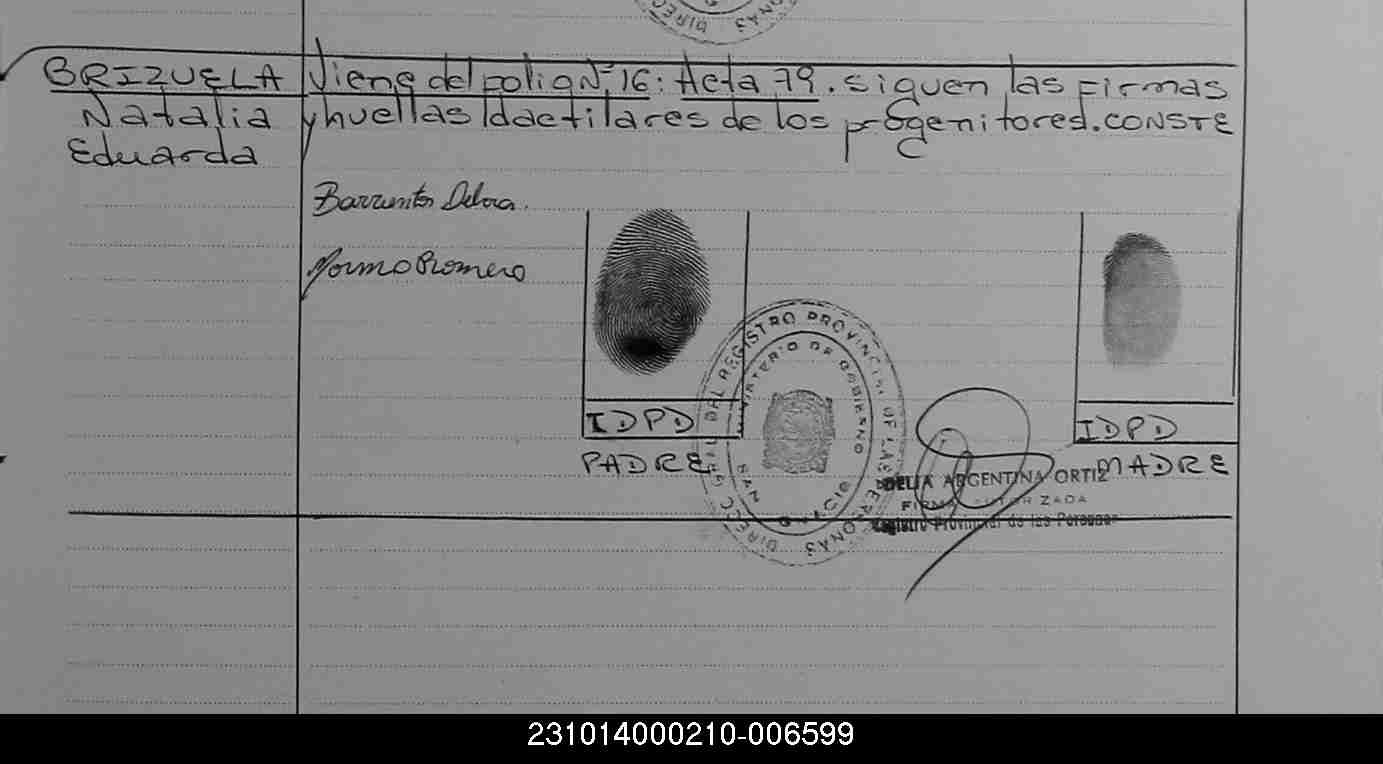 DIREC NAS
BRIZUELA Viene del folio Nº 16: Acta 79. siguen las firmas
Natalia y huellas dactilares de los progenitores. CONSTE
Eduarda
Barrientos Debora.
Romero
DEL REGISTRO PROVINCIAL DE LAS PERSONAS
MINISTERIO DE GOBIERNO
SAN
IDPD
PADRE
IDPD
MADRE
DELIA ARGENTINA ORTIZ
FIRMA AUTORIZADA
Registro Provincial de las Personas
231014000210-006599